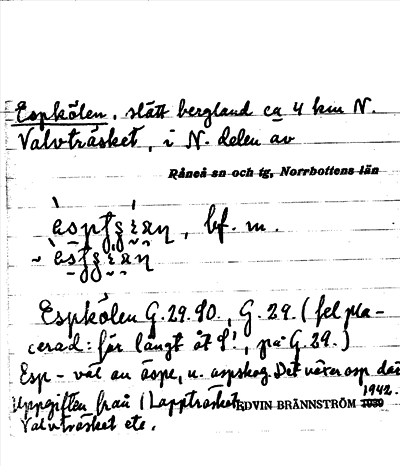 Espkölen, slätt bergland ca 4 km N.
Valvträsket, i N. delen av
Råneå sn och tg, Norrbottens län
bf. m.
Espkölen G.29.S0., G. 29. (fel pla-
cerad: för långt åt S!, på G.29.)
Esp- väl au äspe, n. aspskog. Det växer asp där
Uppgiften från Lappträsket, EDVIN BRÄNNSTRÖM 1942.
Valvträsket etc.